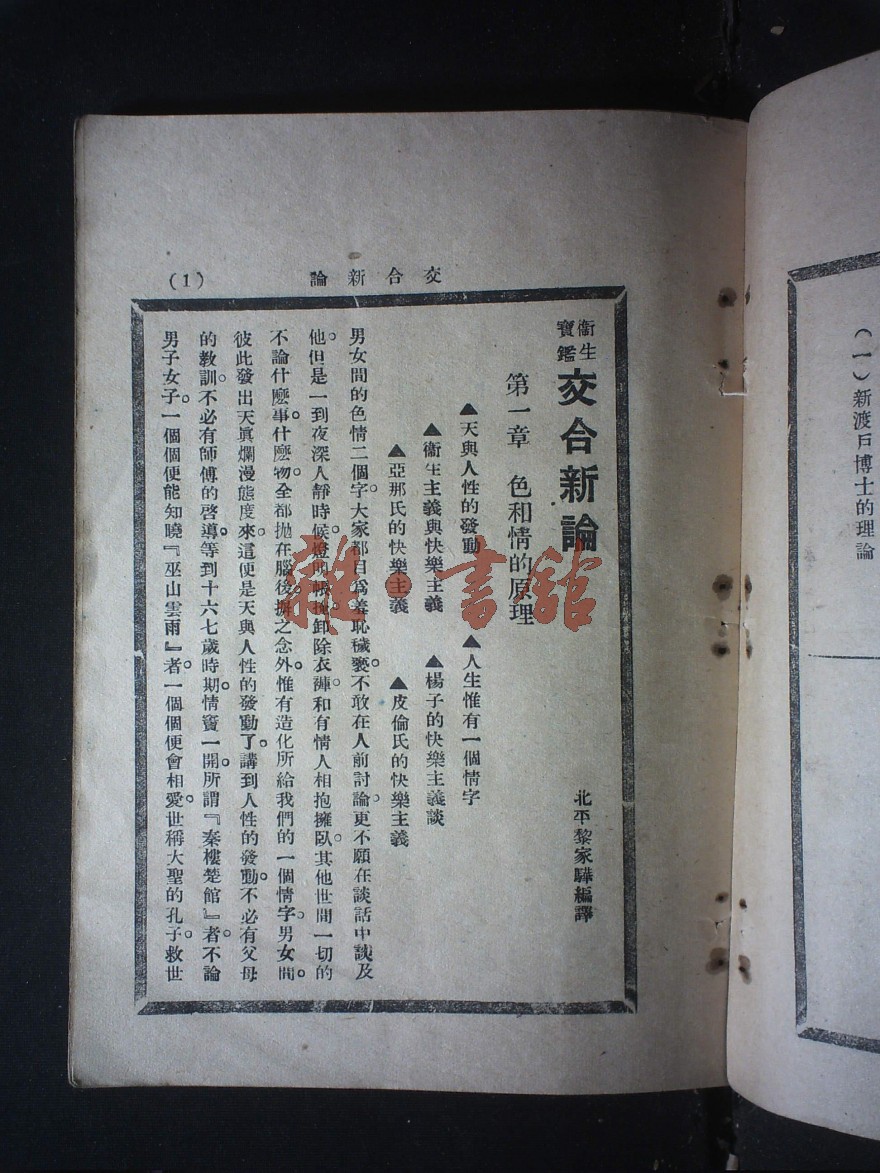 交合新論
(1)
衛生寶鑑
交合新論
北平黎家驊編譯
第一章 色和情的原理
▲天與人性的發動 ▲人生惟有一個情字
▲衛生主義與快樂主義 ▲楊子的快樂主義談
▲亞那氏的快樂主義 ▲皮倫氏的快樂主義
男女間的色情二個字。大家都目爲羞恥穢褻。不敢在人前討論。更不願在談話中談及
他。但是一到夜深人靜時候。燈 帳 卸除衣褲。和有情人相抱擁臥。其他世間一切的
不論什麼事。什麼物。全都拋在腦後。摒之念外。惟有造化所給我們的一個情字。男女間。
彼此發出天眞爛漫態度來。這便是天與人性的發動了。講到人性的發動。不必有父母
的教訓。不必有師傅的啓導。等到十六七歲時期。情竇一開。所謂『秦樓楚館』者。不論
男子女子。一個個便能知曉『巫山雲雨』者。一個個便會相愛。世稱大聖的孔子。救世
(一)新渡戶博士的理論
雜·書館